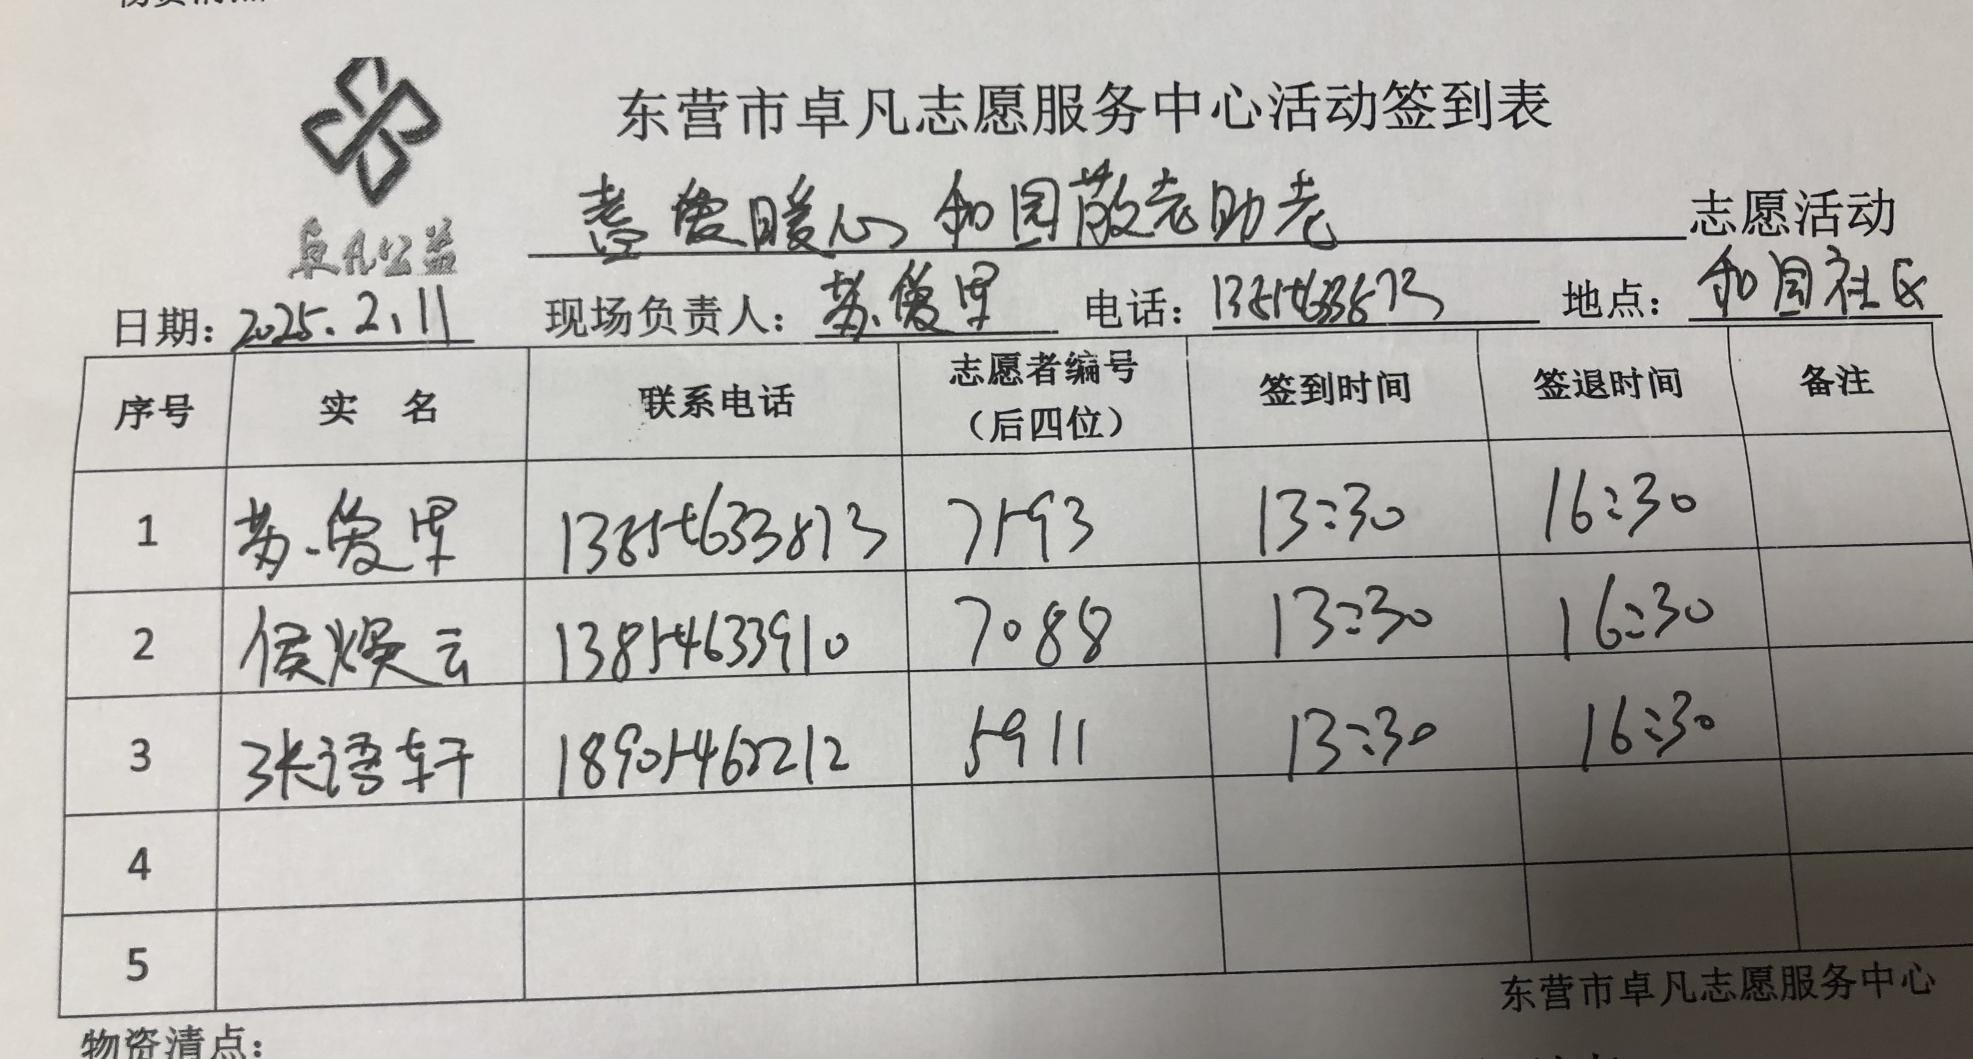 东营市卓凡志愿服务中心活动签到表
卓凡公益
耋爱暖心 和园敬老助老 志愿活动
日期: 2025.2.11 现场负责人: 苏俊军 电话: 13854633873 地点: 和园社区
序号 实 名 联系电话 志愿者编号（后四位） 签到时间 签退时间 备注
1 苏俊军 13854633873 7593 13:30 16:30
2 侯焕云 13854633910 7088 13:30 16:30
3 张语轩 18905462212 5911 13:30 16:30
4
5
东营市卓凡志愿服务中心
物资清点: